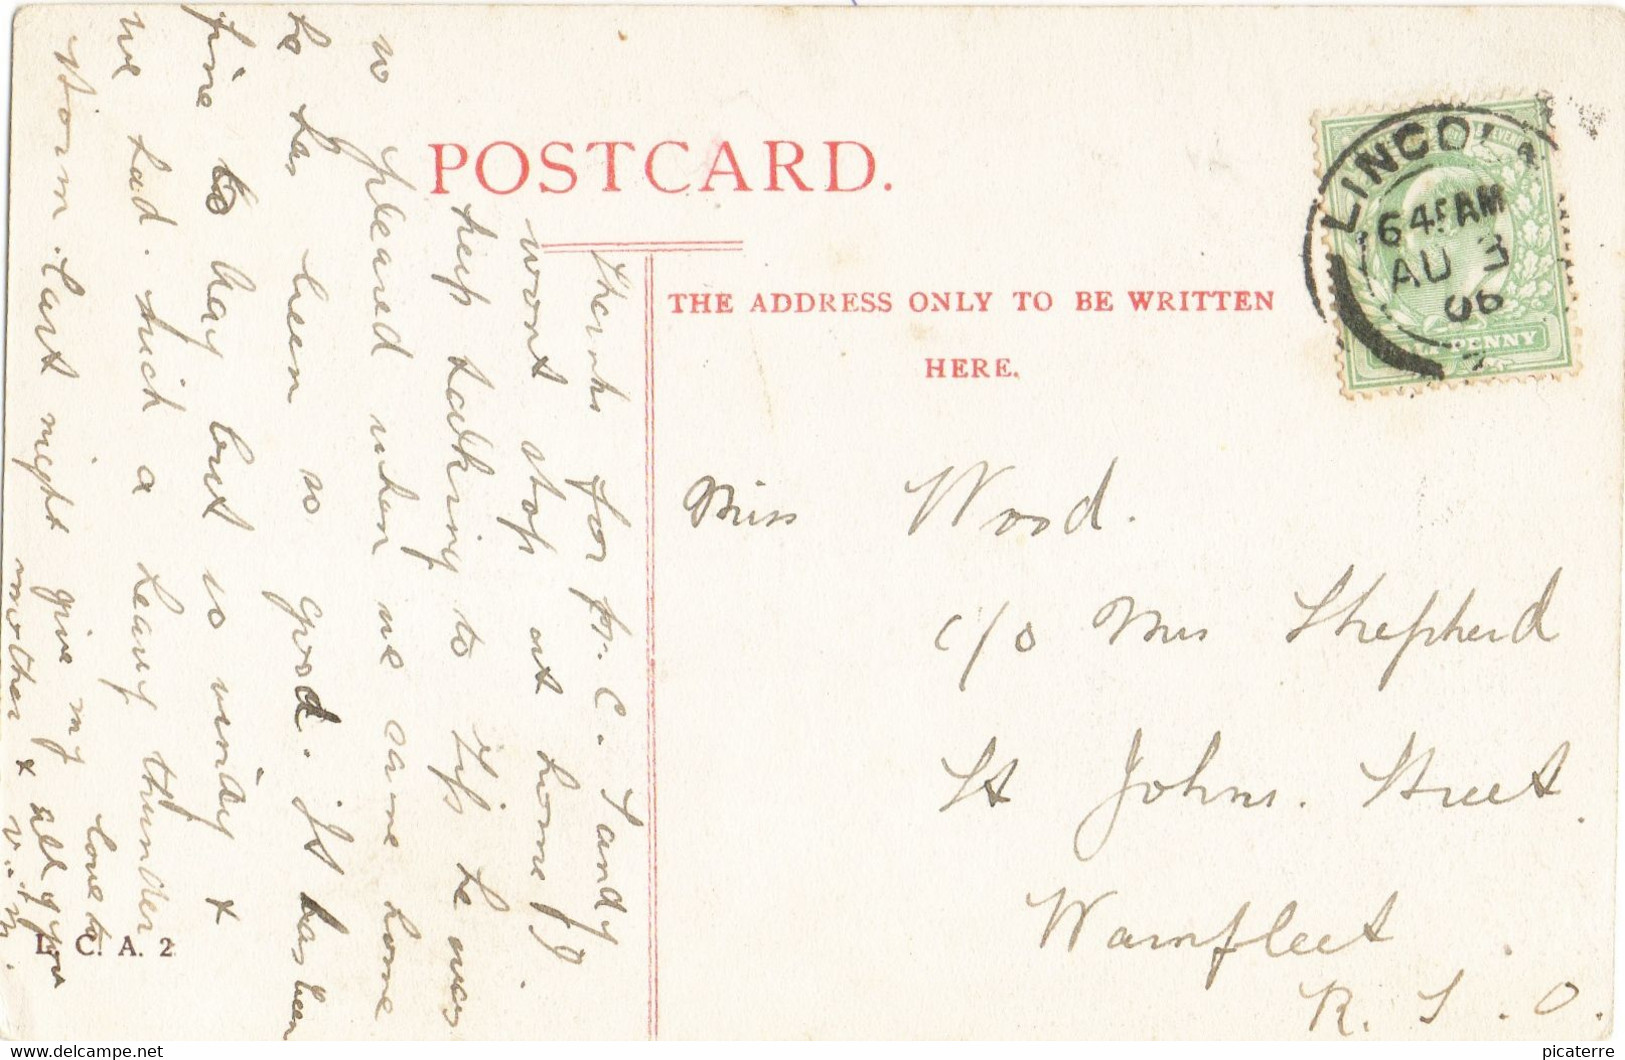 POSTCARD.
THE ADDRESS ONLY TO BE WRITTEN
HERE.
LINCOL
645AM
AU 3
06
PENNY
Miss Wood.
c/o Mrs Shepherd
St Johns. Street.
Wainfleet
R. S. O.
Thanks for p.c. Sandy
wont stop at home if J.
keep talking to Tip he was
so pleased when we came home
he has been so good. It has been
fine to day but so windy &
we had such a heavy thunder
storm last night give my love to
mother & all of you
V. M.
L. C. A. 2
picaterre